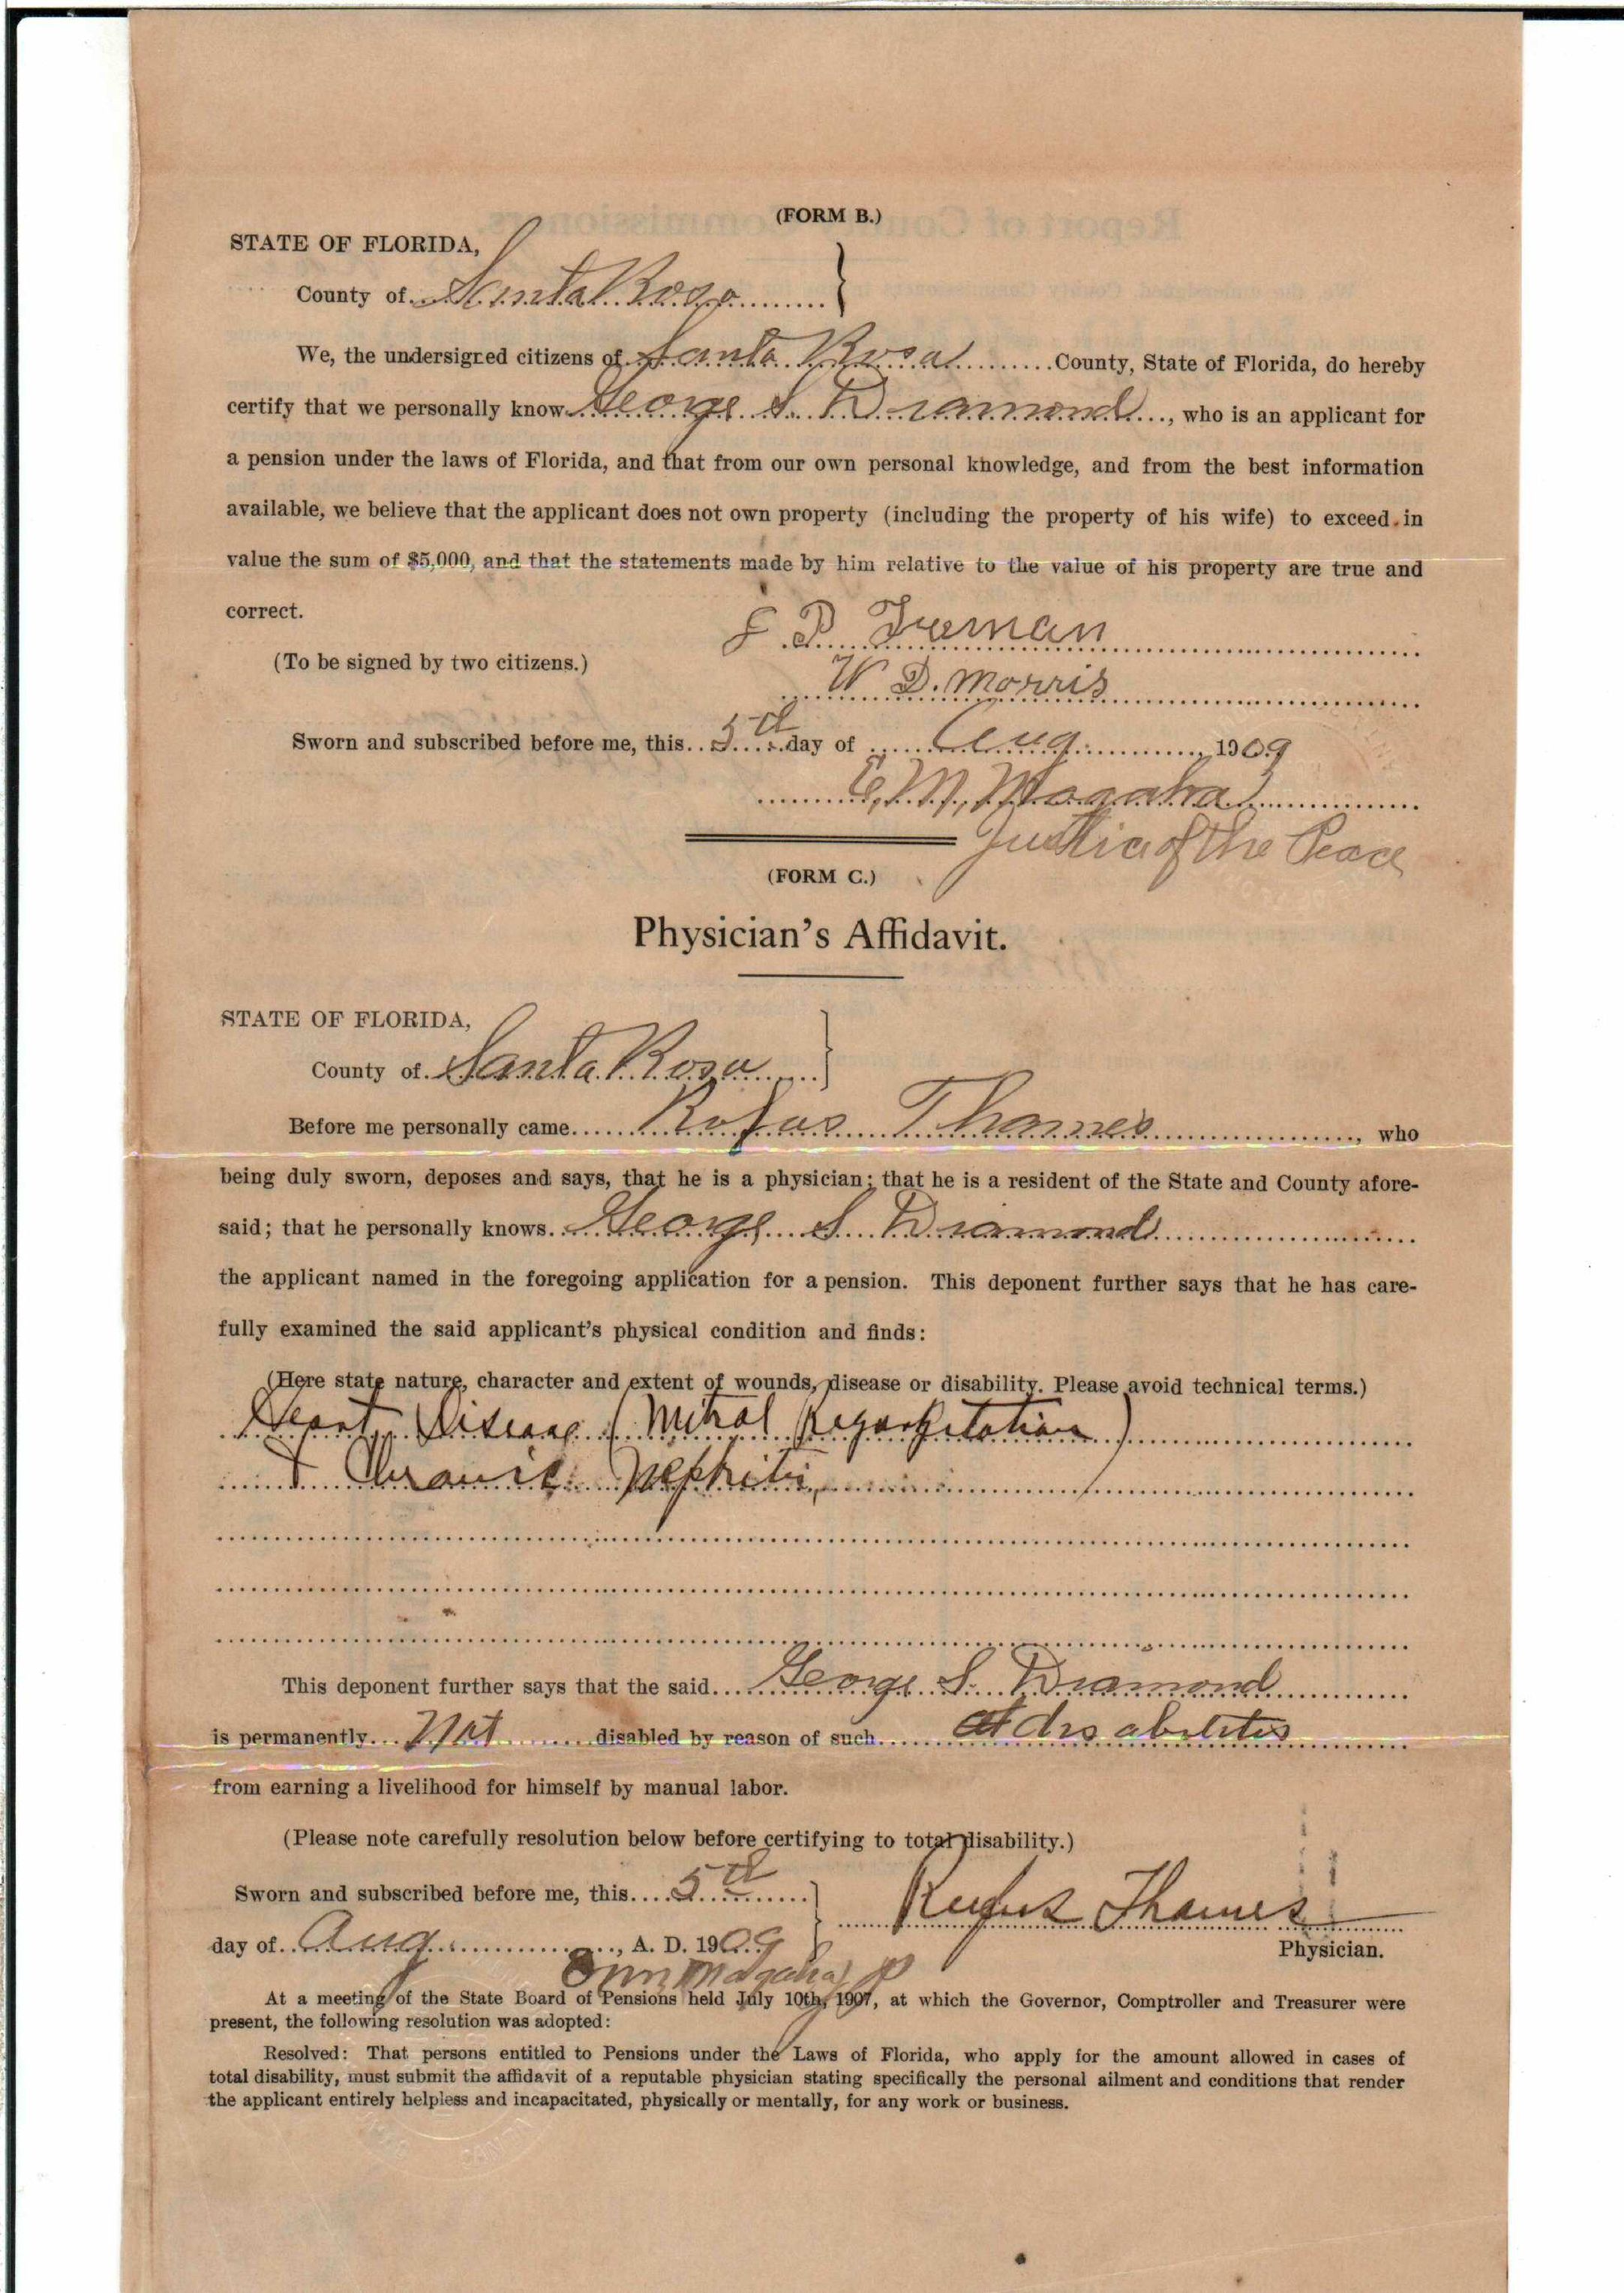 (FORM B.)
STATE OF FLORIDA,
County of Santa Rosa
We, the undersigned citizens of Santa Rosa County, State of Florida, do hereby
certify that we personally know George S. Diamond, who is an applicant for
a pension under the laws of Florida, and that from our own personal knowledge, and from the best information
available, we believe that the applicant does not own property (including the property of his wife) to exceed in
value the sum of $5,000, and that the statements made by him relative to the value of his property are true and
correct.
P.
(To be signed by two citizens.)
W D. Morris
Sworn and subscribed before me, this 5th day of Aug, 1909
Magaha
Justice of the Peace
(FORM C.)
Physician's Affidavit.
STATE OF FLORIDA,
County of Santa Rosa
Before me personally came Rufus Thames, who
being duly sworn, deposes and says, that he is a physician; that he is a resident of the State and County afore-
said; that he personally knows George S Diamond
the applicant named in the foregoing application for a pension. This deponent further says that he has care-
fully examined the said applicant's physical condition and finds:
(Here state nature, character and extent of wounds, disease or disability. Please avoid technical terms.)
Heart Disease (Mitral Regurgitation)
+ Chronic Nephritis
This deponent further says that the said George S. Diamond
is permanently Not disabled by reason of such disabilites
from earning a livelihood for himself by manual labor.
(Please note carefully resolution below before certifying to total disability.)
Sworn and subscribed before me, this 5th
Rufus Thames
day of Aug, A. D. 1909
Physician.
Magaha J P
At a meeting of the State Board of Pensions held July 10th, 1907, at which the Governor, Comptroller and Treasurer were
present, the following resolution was adopted:
Resolved: That persons entitled to Pensions under the Laws of Florida, who apply for the amount allowed in cases of
total disability, must submit the affidavit of a reputable physician stating specifically the personal ailment and conditions that render
the applicant entirely helpless and incapacitated, physically or mentally, for any work or business.